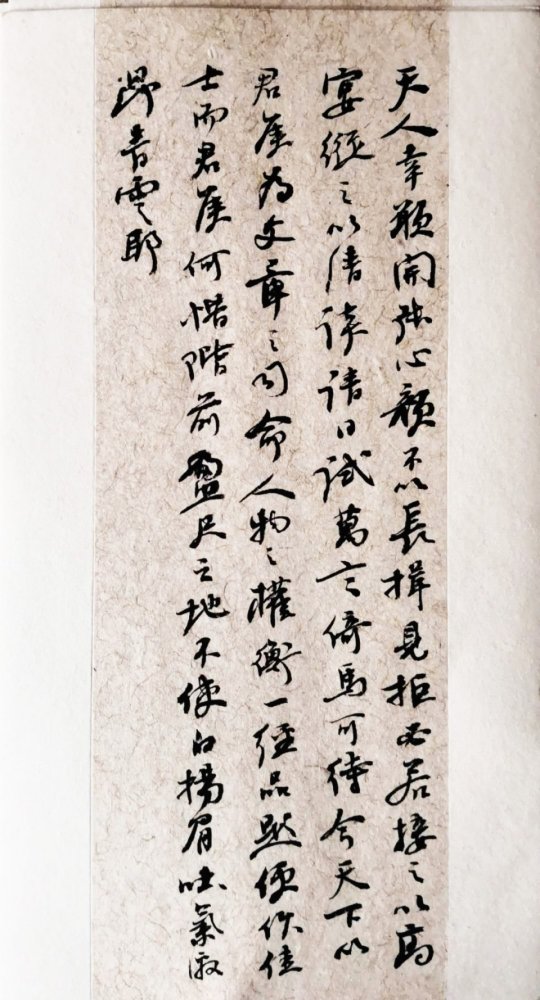 天人幸願開張心顏不以長揖見拒必若接之以高
宴縱之以清談請日試萬言倚馬可待今天下以
君侯為文章之司命人物之權衡一經品題便作佳
士而君侯何惜階前盈尺之地不使白揚眉吐氣激
昂青雲耶